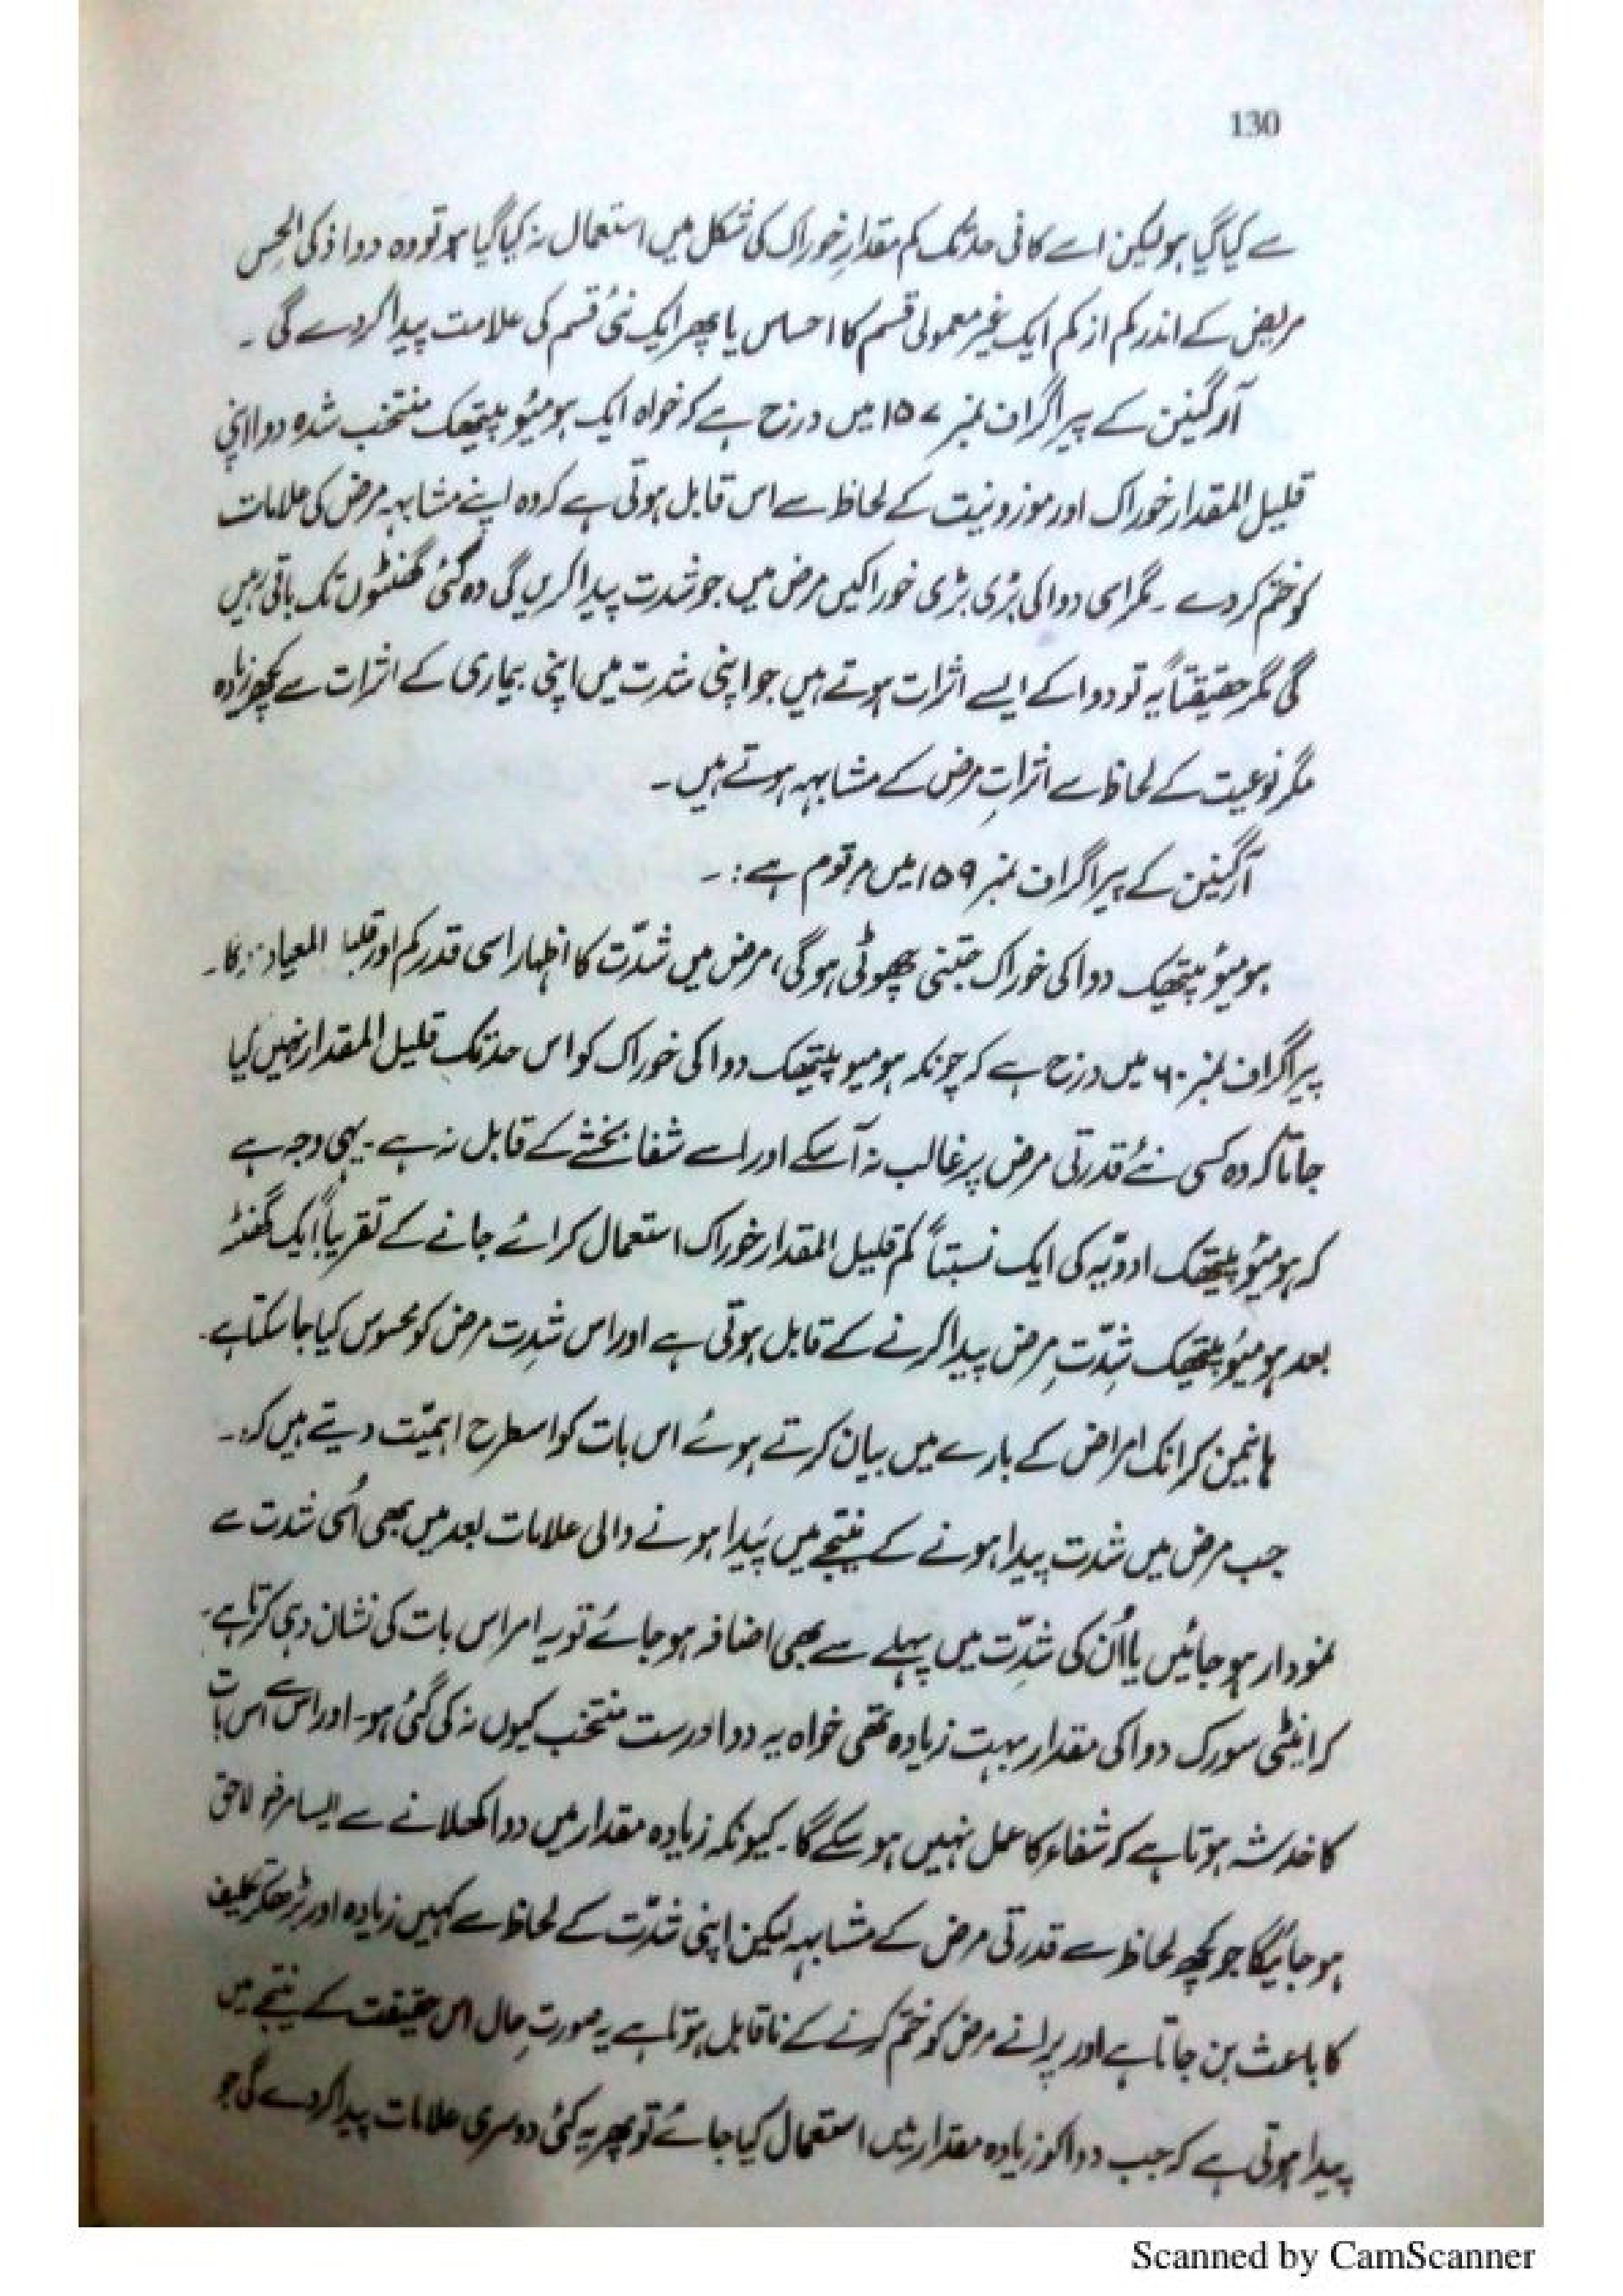 130
سے کیا گیا ہو لیکن اسے کافی حد تک کم مقدارِ خوراک کی شکل میں استعمال نہ کیا گیا ہو تو وہ دوا ذکی الحِس
مریض کے اندر کم از کم ایک غیر معمولی قسم کا احساس یا پھر ایک نئی قسم کی علامت پیدا کر دے گی ۔
آرگینن کے پیراگراف نمبر ۱۵۷ میں درج ہے کہ خواہ ایک ہومیؤپیتھک منتخب شدہ دوا اپنی
قلیل المقدار خوراک اور موزونیت کے لحاظ سے اس قابل ہوتی ہے کہ وہ اپنے مشابہہ مرض کی علامات
کو ختم کر دے ۔ مگر اسی دوا کی بڑی بڑی خوراکیں مرض میں جو شدت پیدا کریں گی وہ کئی گھنٹوں تک باقی رہیں
گی مگر حقیقتاً یہ تو دوا کے ایسے اثرات ہوتے ہیں جو اپنی شدت میں اپنی بیماری کے اثرات سے کچھ زیادہ
مگر نوعیت کے لحاظ سے اثراتِ مرض کے مشابہہ ہوتے ہیں ۔
آرگینن کے پیراگراف نمبر ۱۵۹ میں مرقوم ہے : ۔
ہومیؤپیتھک دوا کی خوراک جتنی چھوٹی ہوگی، مرض میں شدّت کا اظہار اسی قدر کم اور المعیاد
پیراگراف نمبر ۶۰ میں درج ہے کہ چونکہ ہومیوپیتھک دوا کی خوراک کو اس حد تک قلیل المقدار نہیں کیا
جاتا کہ وہ کسی نئے قدرتی مرض پر غالب نہ آ سکے اور اسے شفا بخشنے کے قابل نہ ہے ۔ یہی وجہ ہے
کہ ہومیؤپیتھک ادویّہ کی ایک نسبتاً کم قلیل المقدار خوراک استعمال کرائے جانے کے تقریباً ایک گھنٹہ
بعد ہومیؤپیتھک شِدّتِ مرض پیدا کرنے کے قابل ہوتی ہے اور اس شدِت مرض کو محسوس کیا جا سکتا ہے۔
ہانیمن کرانک امراض کے بارے میں بیان کرتے ہوئے اس بات کو اسطرح اہمیّت دیتے ہیں کہ:۔
جب مرض میں شدت پیدا ہونے کے نتیجے میں پَیدا ہونے والی علامات بعد میں بھی اُسی شدت سے
نمودار ہو جائیں یا اُن کی شدِّت میں پہلے سے بھی اضافہ ہو جائے تو یہ امر اس بات کی نشان دہی کرتا ہے۔
کہ اینٹی سورک دوا کی مقدار بہت زیادہ تھی خواہ یہ دوا درست منتخب کیوں نہ کی گئی ہو۔ اور اس سے اس بات
کا خدشہ ہوتا ہے کہ شفاء کا عمل نہیں ہو سکے گا۔ کیونکہ زیادہ مقدار میں دوا کھلانے سے ایسا مرض لاحق
ہو جائیگا جو کچھ لحاظ سے قدرتی مرض کے مشابہہ لیکن اپنی شدّت کے لحاظ سے کہیں زیادہ اور بڑھکر تکلیف
کا باعث بن جاتا ہے اور پرانے مرض کو ختم کرنے کے ناقابل ہوتا ہے یہ صورتِ حال اس حقیقت کے نتیجے میں
پیدا ہوتی ہے کہ جب دوا کو زیادہ مقدار میں استعمال کیا جائے تو پھر یہ کئی دوسری علامات پیدا کر دے گی جو
Scanned by CamScanner